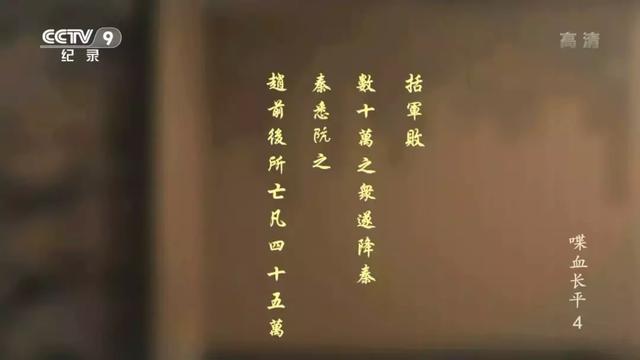 CCTV 9
纪录
高清
括軍敗
數十萬之衆遂降秦
秦悉阬之
趙前後所亡凡四十五萬
喋血长平 4